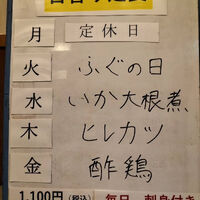 月 定休日
火 ふぐの日
水 いか大根煮
木 ヒレカツ
金 酢鶏
1,100円(税込) 毎日 刺身付き